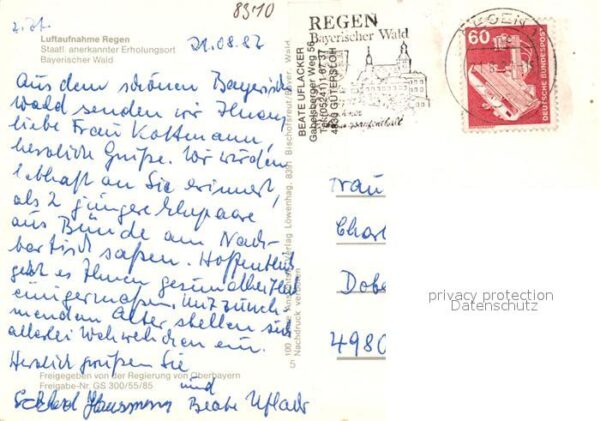 8310
Luftaufnahme Regen
Staatl. anerkannter Erholungsort
Bayerischer Wald
21.08.87
Aus dem schönen Bayerisch
wald senden wir Ihnen,
liebe Frau Kottmann,
herzliche Grüße. Wir würden
lebhaft an Sie erinnert,
als 2 jüngere Ehepaare
aus Bünde am Nach-
bartisch saßen. Hoffentlich
geht es Ihnen gesundheitlich
einigermaßen. Mit zuneh-
mendem Alter stellen sich
allerlei Wehwehchen ein.
Herzlich grüßen Sie
und
Hausmann Beate Uflacker
Freigegeben von der Regierung von Oberbayern
Freigabe-Nr. GS 300/55/85
5
Verlag Löwenhag, 8391 Bischofsreut/Bayer. Wald
Nachdruck verboten
BEATE UFLACKER
Gabelsberger Weg 56
4830 GÜTERSLOH
REGEN
Bayerischer Wald
REGEN
60
DEUTSCHE BUNDESPOST
Frau
Charl
Dobe
4980
privacy protection
Datenschutz